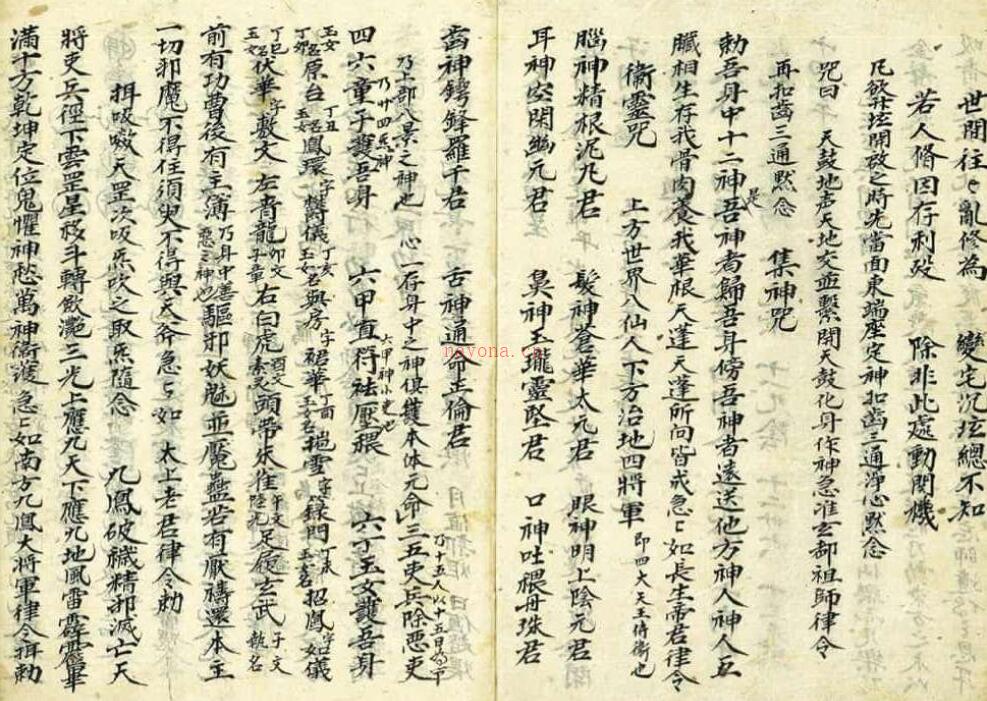 世間往々亂修為　變宅沉玹總不知
若人俻因存利殁　除非此處動関機
凢欲玹開啟之時先當面東端座定神扣齒三通淨心默念
咒曰　天鼓地声天地交並繫開天鼓化身作神急准玄都祖師律令
再扣齒三通默念　集神咒
勅吾身中十二神吾是神者歸吾身傍吾神者遠送他方神人神人五
臟相生存我骨肉养我華根天蓬天蓬所问皆戒急々如長生帝君律令
衛靈咒　上方世界八仙人下方治地四將軍 即四大天王侍衛也
腦神精根泥凡君　髮神蒼華太元君　眼神明上陰元君
耳神空閑幽元君　鼻神玉瓏靈坚君　口神吐猥丹珠君
齒神鍔鋒羅千君　舌神通命正倫君
乃上部八景之神也 一心一存身中之神俱護本体元命三五吏兵除惡吏
四六童子護吾身 乃廿四炁神 六甲直符祛壓猥 六甲神小吏也 六丁玉女護吾身
玉女 丁卯名原台 丁丑玉女名鳳環字 丁亥玉女名與房字 丁酉玉女名招鳳字如儀
丁巳玉女名伏華字敷文 左青龍 卯文孟章 右白虎 酉文 頭帶朱雀 午文陵光 足履玄武 子文执名
前有功曹後有主簿 乃身中善惡二神也 驅邪妖魅並魘蠱若有厭禱還本主
一切邪魔不得住須臾不得與 太斧急々如　太上老君律令勅
揖吸噭天罡次吸炁吹之取炁隨念　九鳳破穢精邪滅亡天
將吏兵徑下雲罡星移斗轉飲灔三光上應九天下應九地風雷霹靂畢
滿十方乾坤定位鬼懼神愁萬神衛護急々如南方九鳳大將軍律令揖勅
nayona.cn